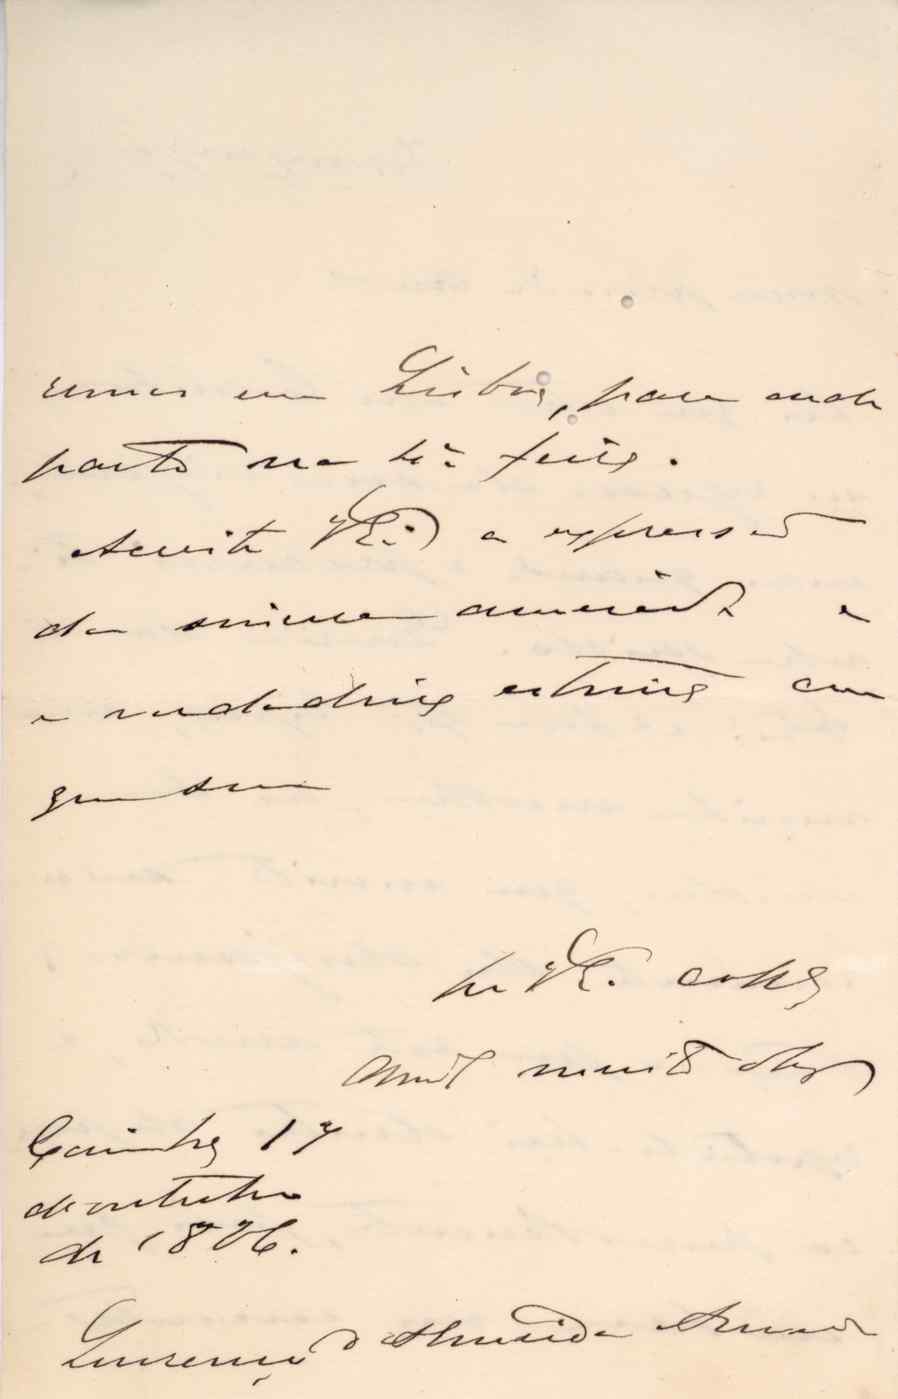 em Lisboa, para onde
parto na 6ª feira.
Acceite V. Ex.ª a expressão
da sincera amizade e
e verdadeira estima com
que sou
De V. Ex.ª
Amº muito obgº
Coimbra 17
de outubro
de 1896.
Lourenço d'Almeida Azevedo